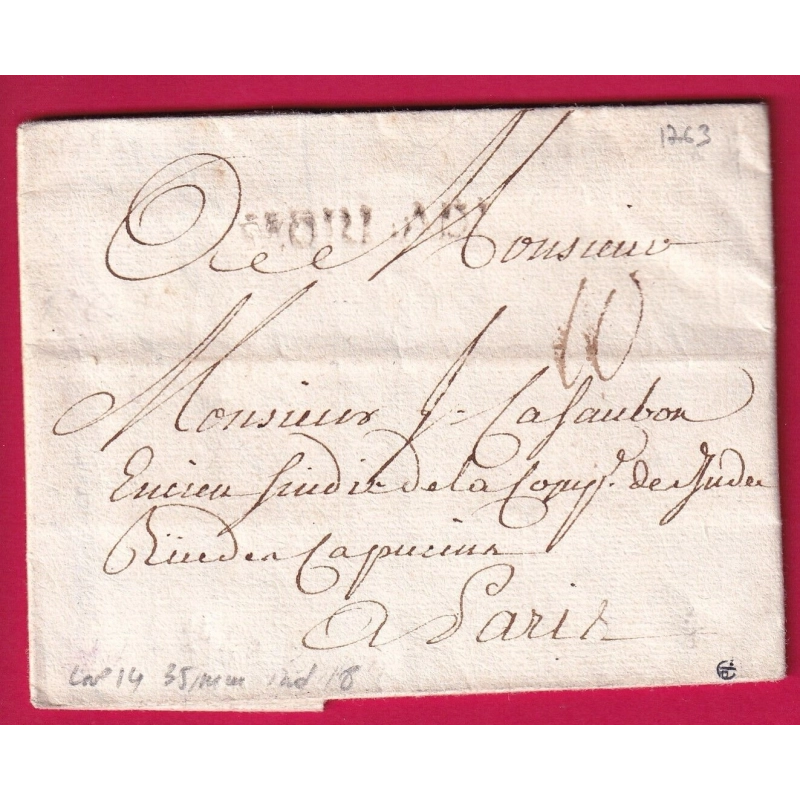 1763
A Monsieur
10
Monsieur J. Casaubon
Encien sindic de la Comp.e de Indes
Rüe des Capucins
a Paris
35 mm ind 18